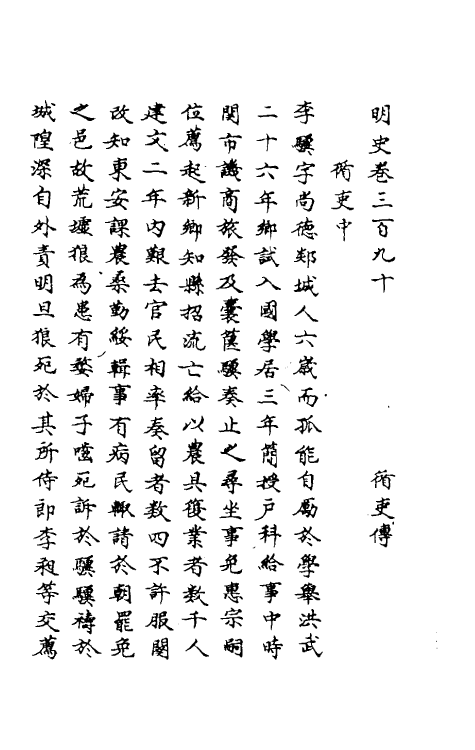 明史卷三百九十 循吏傳
循吏中
李驥字尚德郯城人六歲而孤能自勵於學舉洪武
二十六年鄉試入國學居三年簡授戶科給事中時
関市譏商旅發及囊篋驥奏止之尋坐事免惠宗嗣
位薦起新鄉知縣招流亡給以農具復業者数千人
建文二年內艱去官民相率奏留者数四不許服闋
改知東安課農桑勤綏輯事有病民輙請於朝罷免
之邑故荒墟狼為患有嫠婦子噬死訴於驥驥禱於
城隍深自外責明旦狼死於其所侍郎李昶等交薦